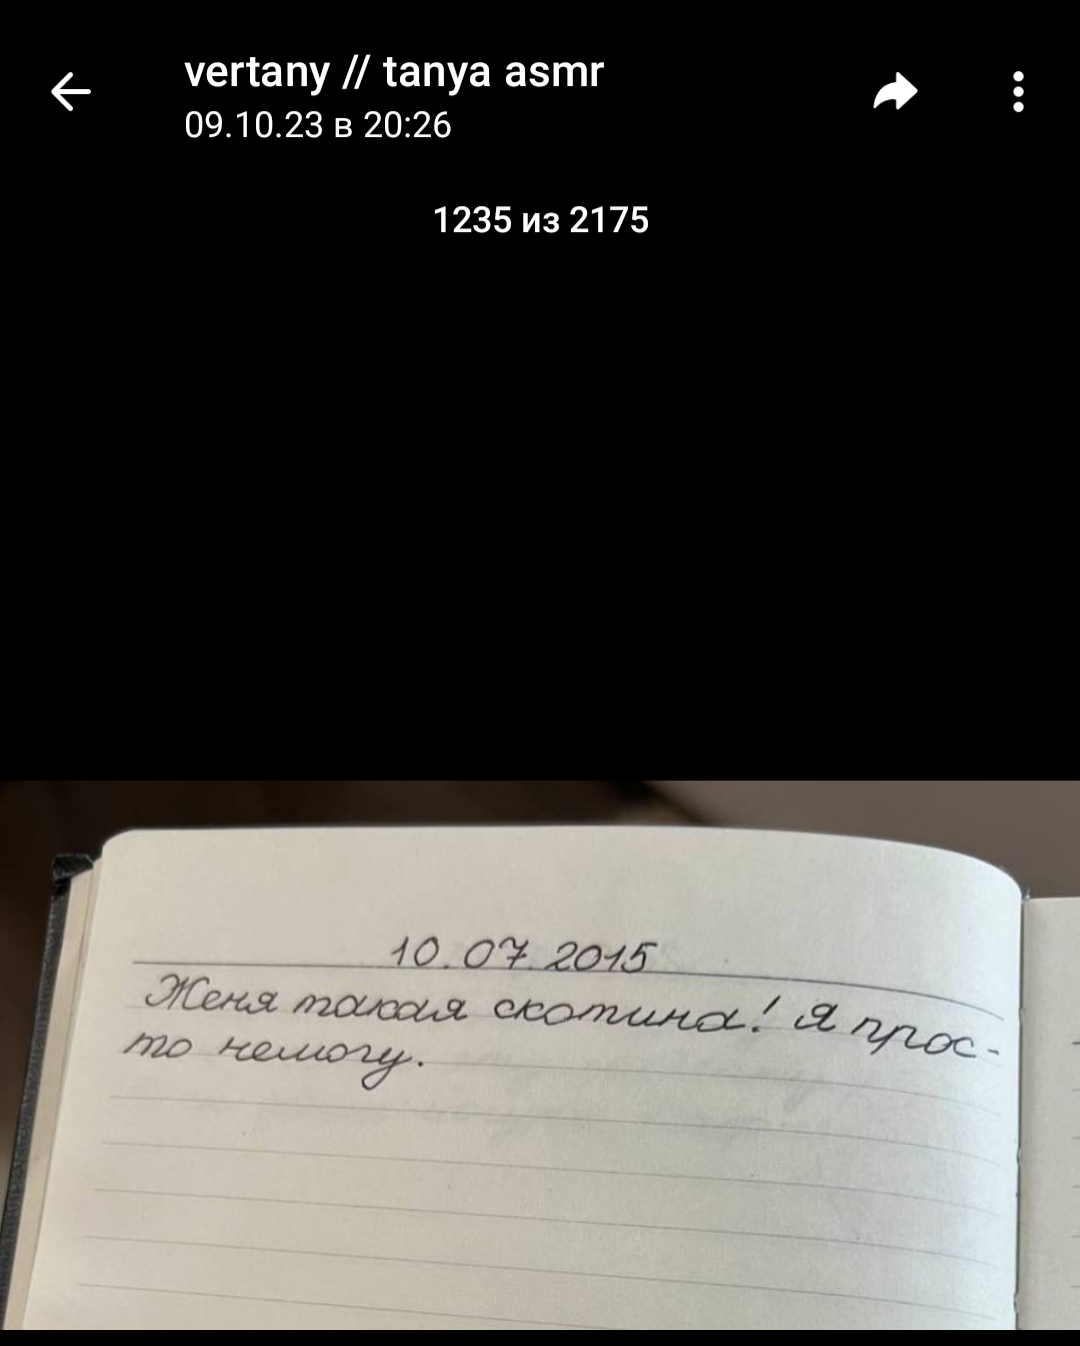 vertany // tanya asmr
09.10.23 в 20:26
1235 из 2175
10.07.2015
Женя такая скотина! Я прос-
то немогу.